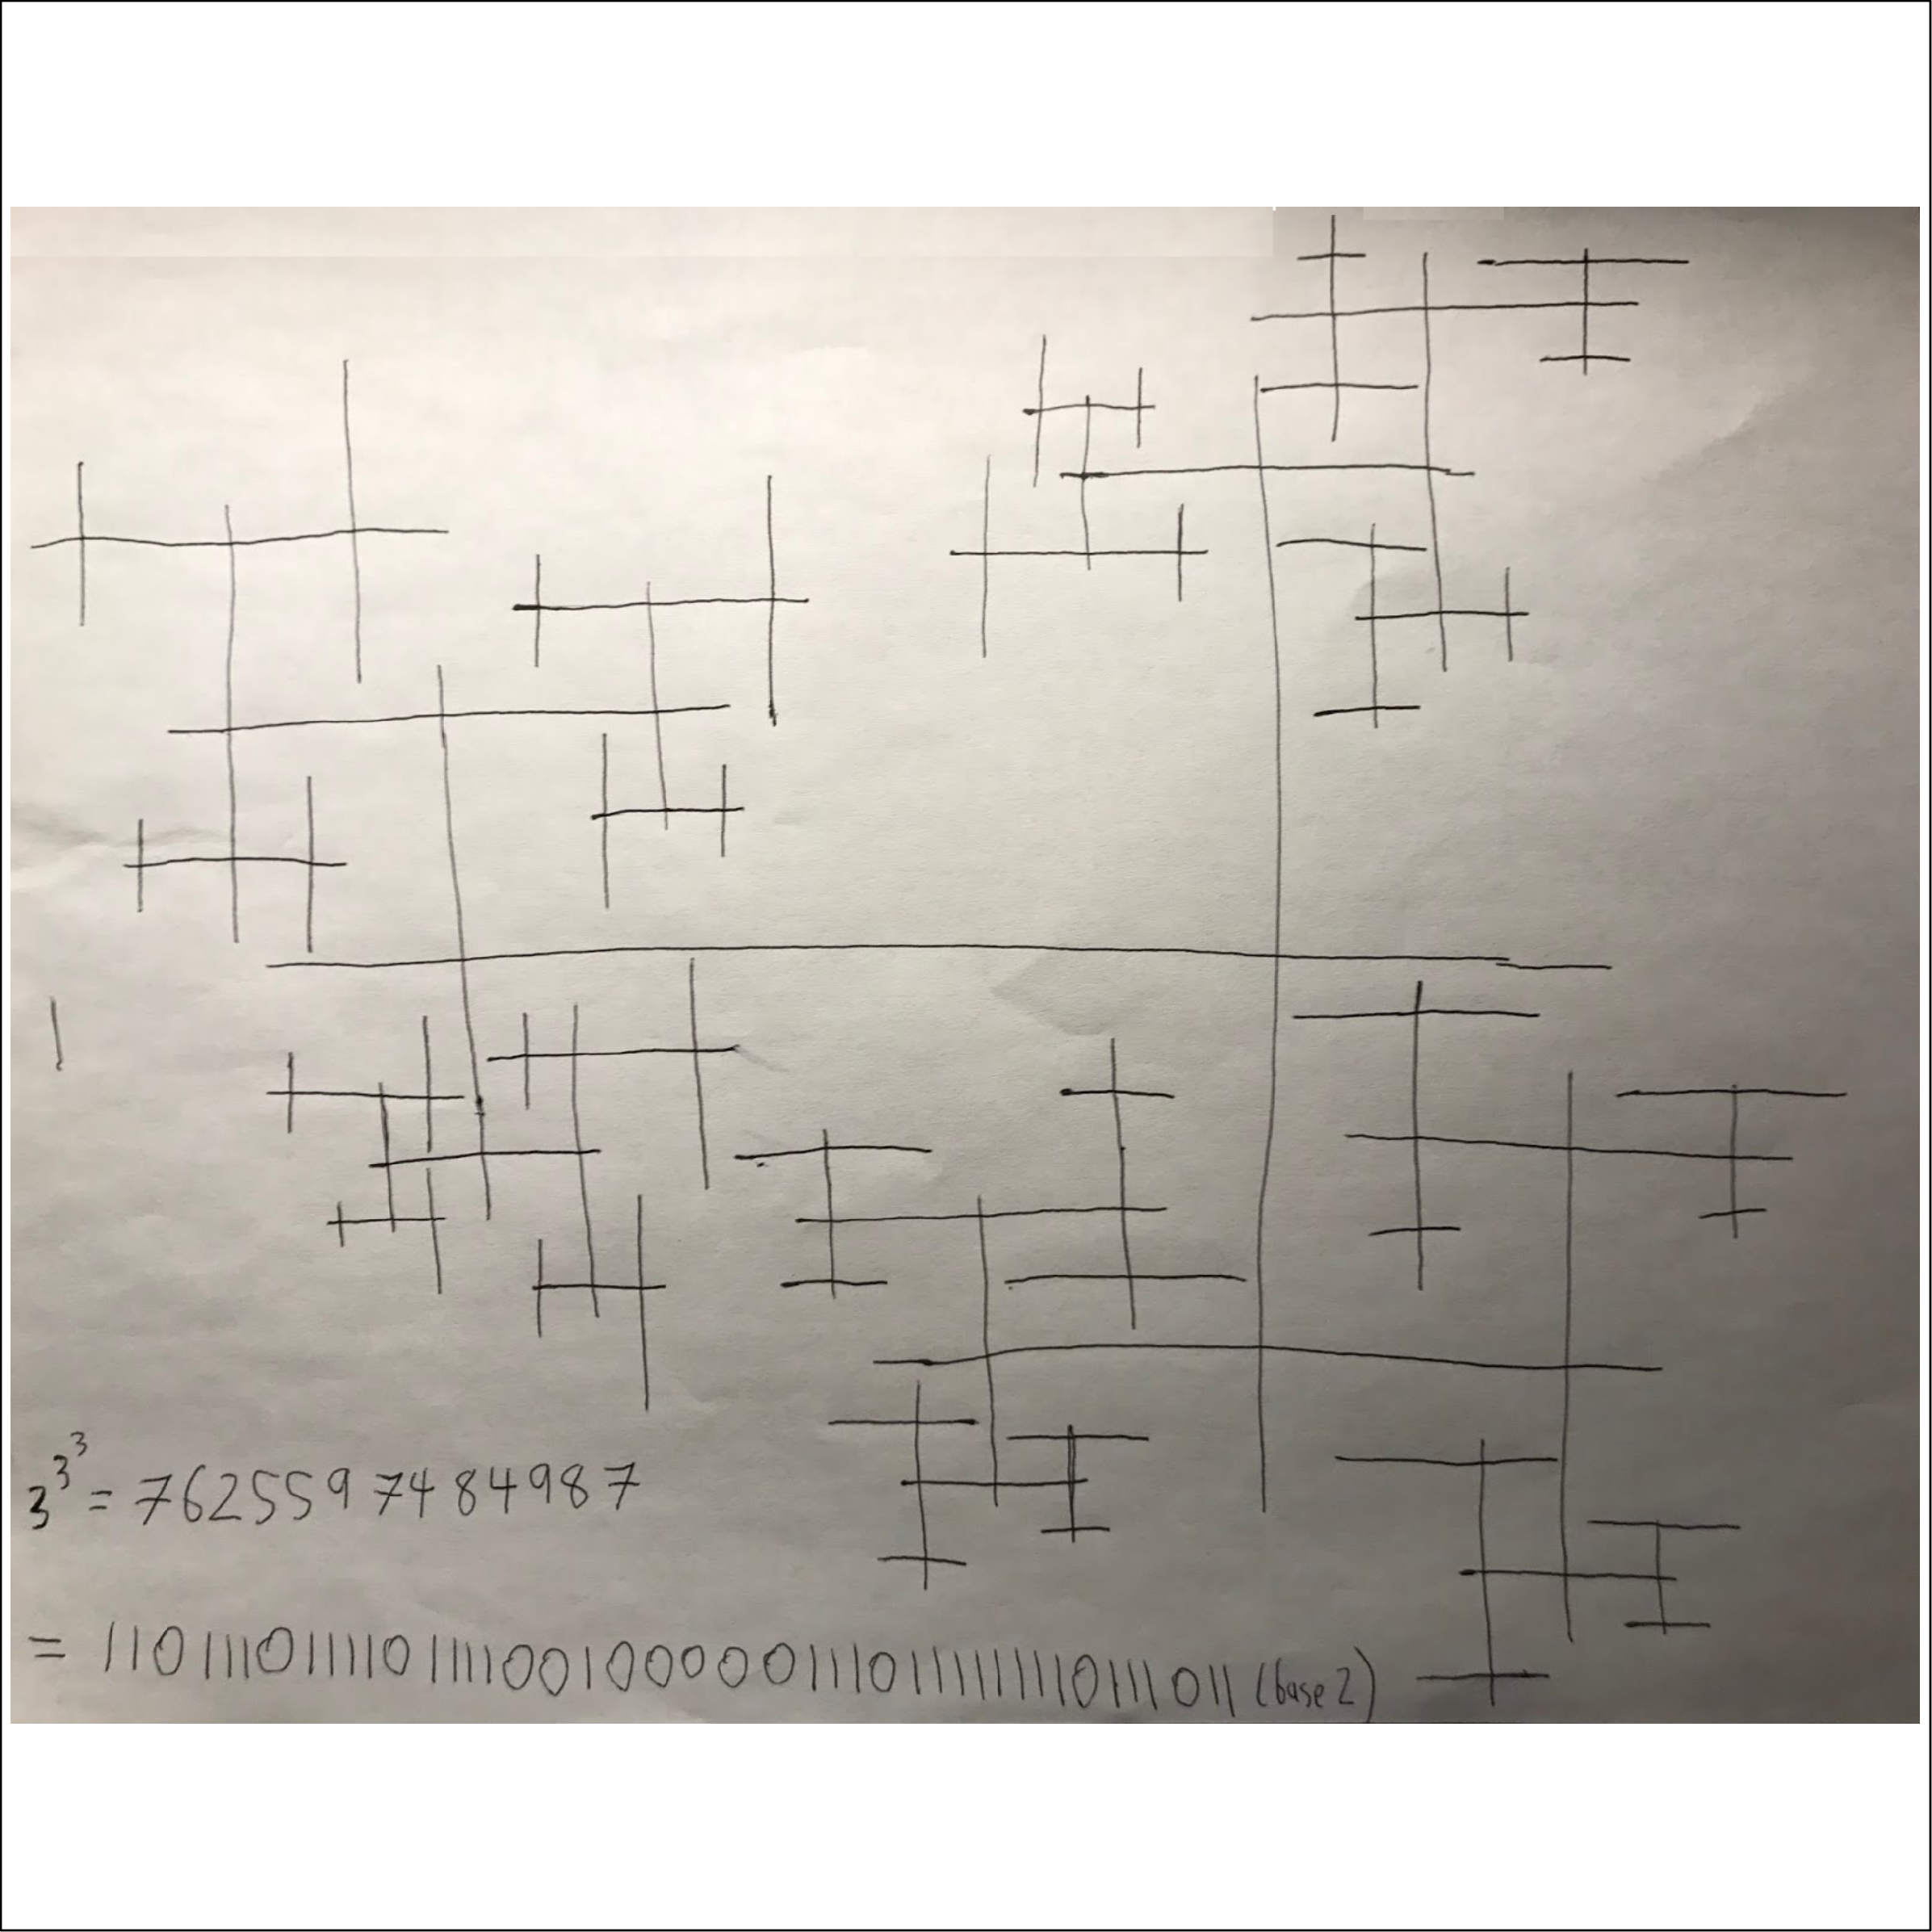 3^3^3 = 7625597484987
= 1101110111101111001000001110111111110111011 (base 2)